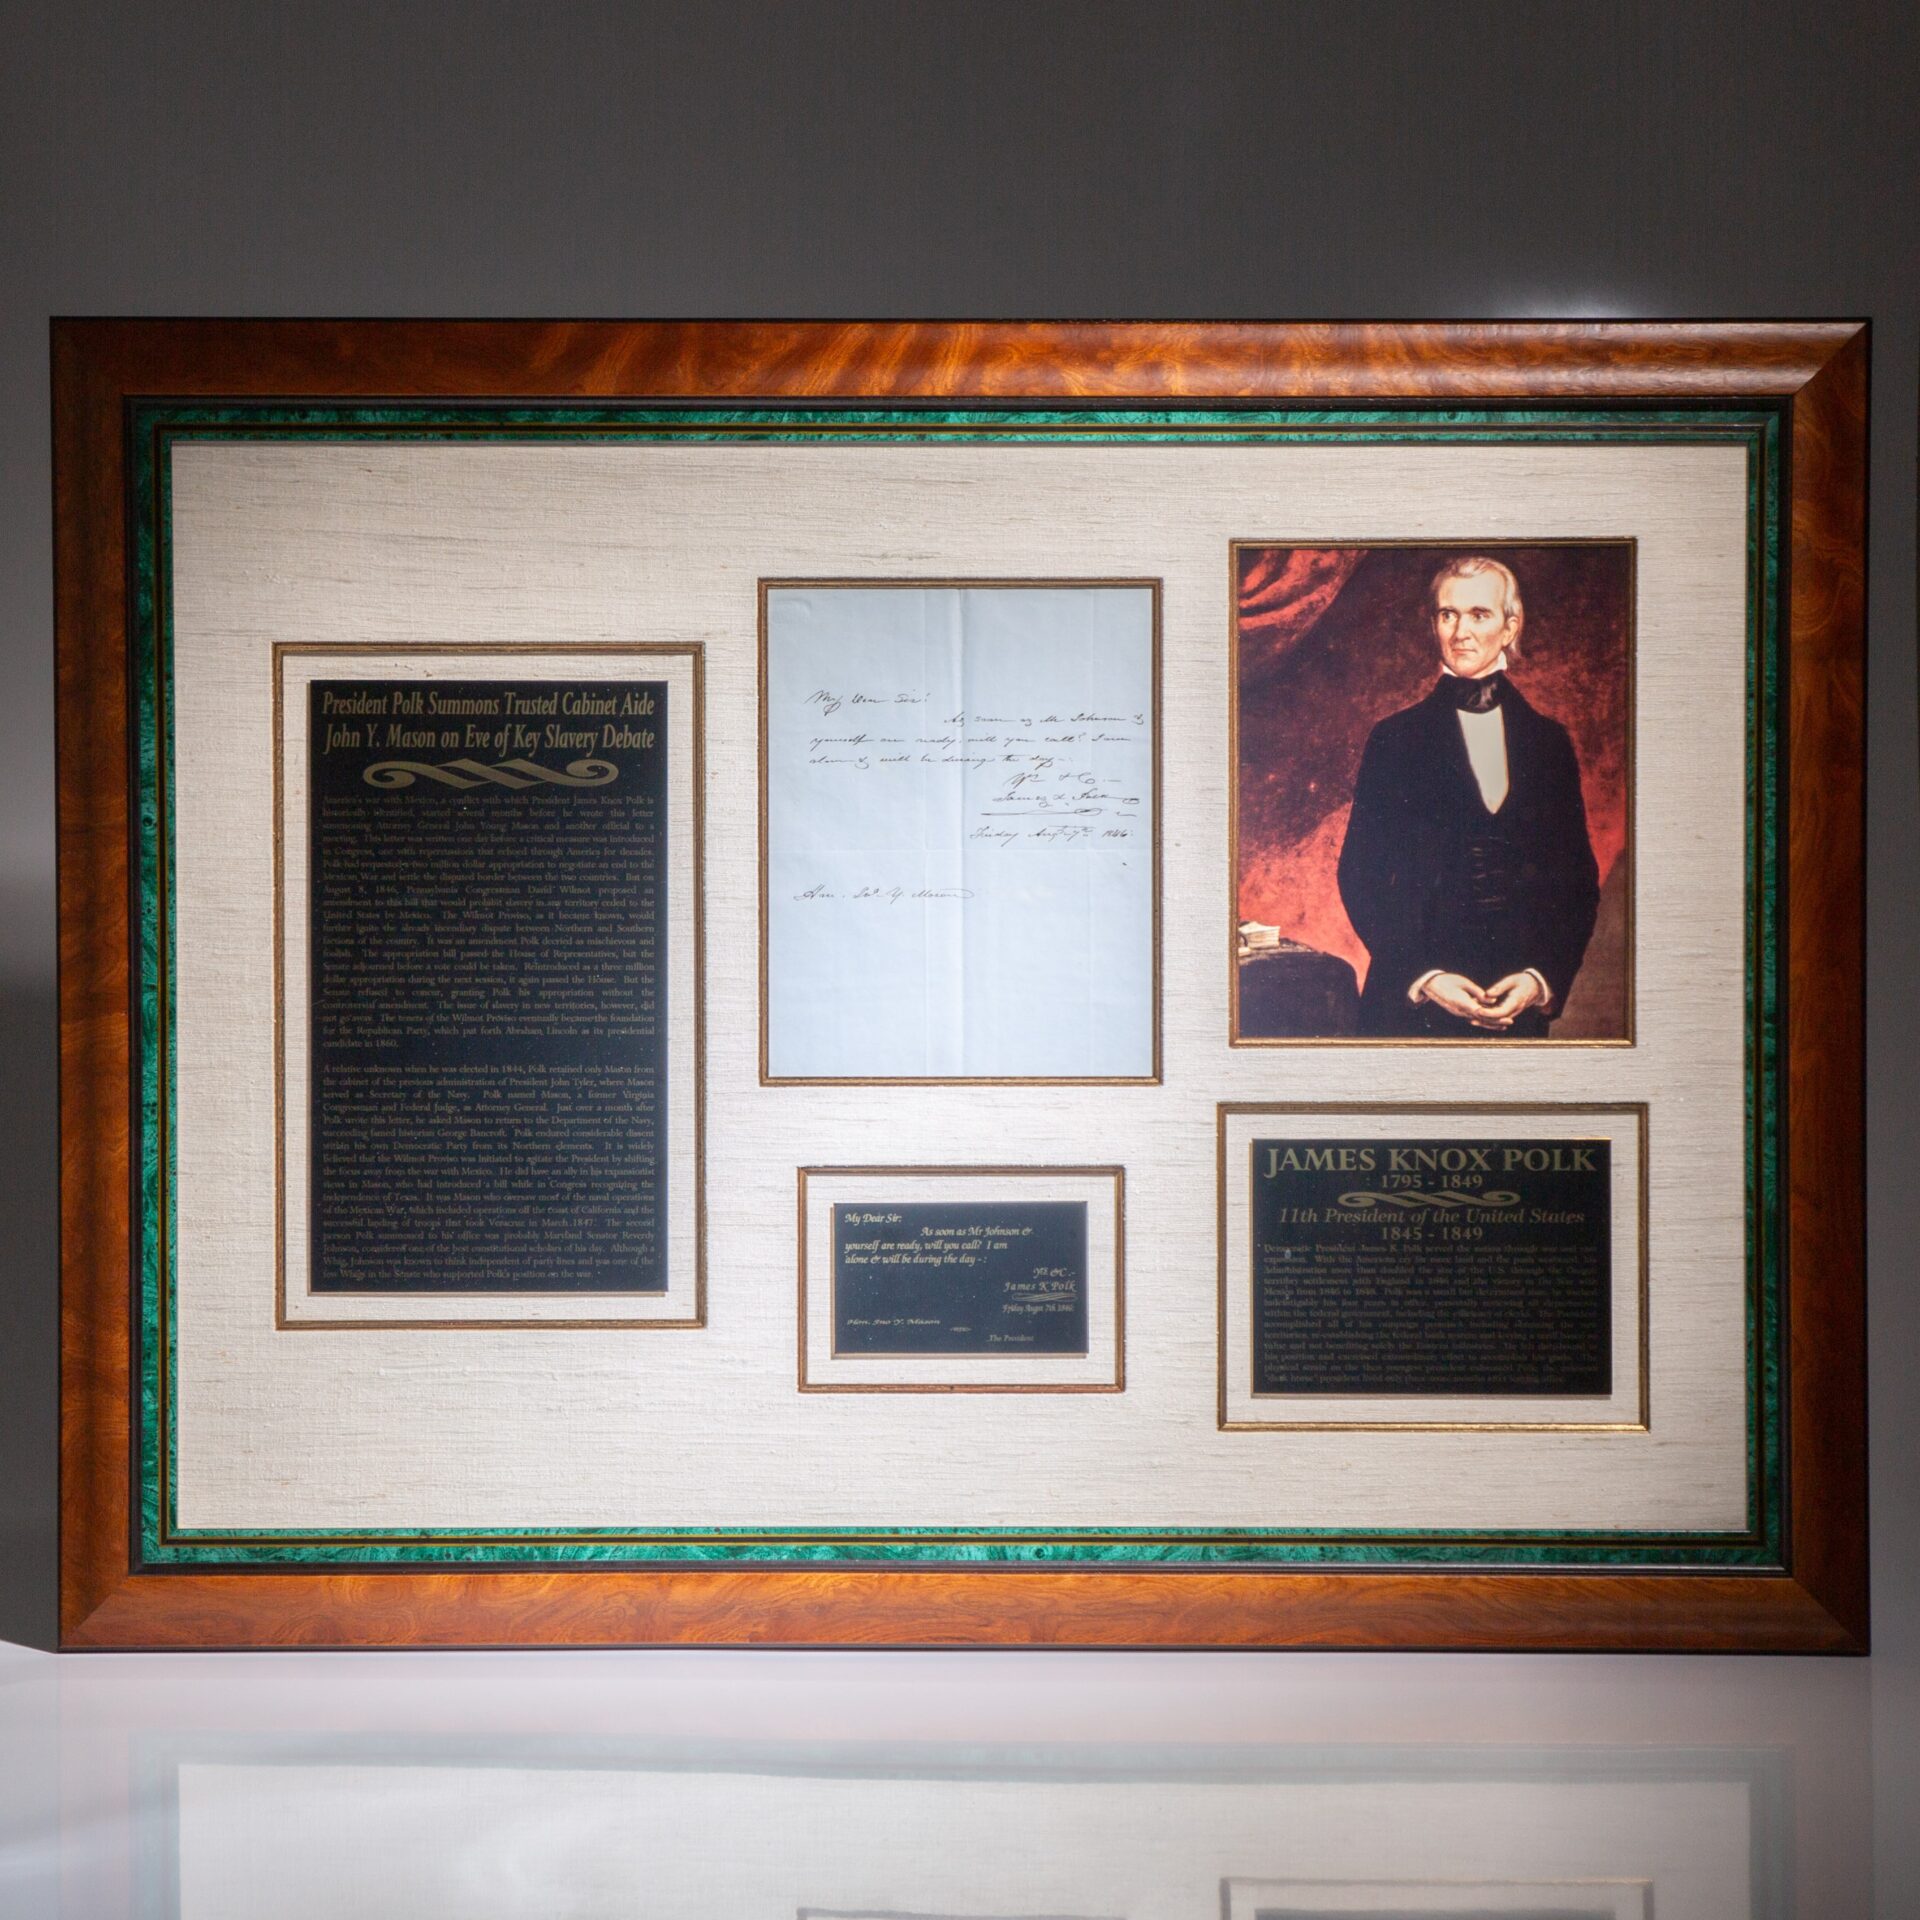 President Polk Summons Trusted Cabinet Aide
John Y. Mason on Eve of Key Slavery Debate
America's war with Mexico, a conflict with which President James Knox Polk is
historically identified, started several months before he wrote this letter
summoning Attorney General John Young Mason and another official to a
meeting. This letter was written one day before a critical measure was introduced
in Congress, one with repercussions that echoed through America for decades.
Polk had requested a two million dollar appropriation to negotiate an end to the
Mexican War and settle the disputed border between the two countries. But on
August 8, 1846, Pennsylvania Congressman David Wilmot proposed an
amendment to this bill that would prohibit slavery in any territory ceded to the
United States by Mexico. The Wilmot Proviso, as it became known, would
further ignite the already incendiary dispute between Northern and Southern
factions of the country. It was an amendment Polk decried as mischievous and
foolish. The appropriation bill passed the House of Representatives, but the
Senate adjourned before a vote could be taken. Reintroduced as a three million
dollar appropriation during the next session, it again passed the House. But the
Senate refused to concur, granting Polk his appropriation without the
controversial amendment. The issue of slavery in new territories, however, did
not go away. The tenets of the Wilmot Proviso eventually became the foundation
for the Republican Party, which put forth Abraham Lincoln as its presidential
candidate in 1860.
A relative unknown when he was elected in 1844, Polk retained only Mason from
the cabinet of the previous administration of President John Tyler, where Mason
served as Secretary of the Navy. Polk named Mason, a former Virginia
Congressman and Federal Judge, as Attorney General. Just over a month after
Polk wrote this letter, he asked Mason to return to the Department of the Navy,
succeeding famed historian George Bancroft. Polk endured considerable dissent
within his own Democratic Party from its Northern elements. It is widely
believed that the Wilmot Proviso was initiated to agitate the President by shifting
the focus away from the war with Mexico. He did have an ally in his expansionist
views in Mason, who had introduced a bill while in Congress recognizing the
independence of Texas. It was Mason who oversaw most of the naval operations
of the Mexican War, which included operations off the coast of California and the
successful landing of troops that took Veracruz in March 1847. The second
person Polk summoned to his office was probably Maryland Senator Reverdy
Johnson, considered one of the best constitutional scholars of his day. Although a
Whig, Johnson was known to think independent of party lines and was one of the
few Whigs in the Senate who supported Polk's position on the war.
My Dear Sir!
As soon as Mr Johnson &
yourself are ready, will you call? I am
alone & will be during the day -:
Yrs &C. -
James K Polk
Friday Augt 7th 1846:
Hon. Jno Y. Mason
My Dear Sir:
As soon as Mr Johnson &
yourself are ready, will you call? I am
alone & will be during the day - :
Yrs &C. -
James K Polk
Friday August 7th 1846:
Hon. Jno Y. Mason
The President
JAMES KNOX POLK
1795 - 1849
11th President of the United States
1845 - 1849
Democratic President James K. Polk served the nation through war and vast
expansion. With the American cry for more land and the push westward, his
Administration more than doubled the size of the U.S. through the Oregon
territory settlement with England in 1846 and the victory in the War with
Mexico from 1846 to 1848. Polk was a small but determined man, he worked
indefatigably his four years in office, personally reviewing all departments
within the federal government, including the efficiency of clerks. The President
accomplished all of his campaign promises including obtaining the new
territories, re-establishing the federal bank system and levying a tariff based on
value and not benefiting solely the Eastern industries.
his position and exercised extraordinary effort to accomplish his goals. The
physical strain on the then youngest president exhausted Polk, the
"dark horse" president lived only three more months after leaving office.